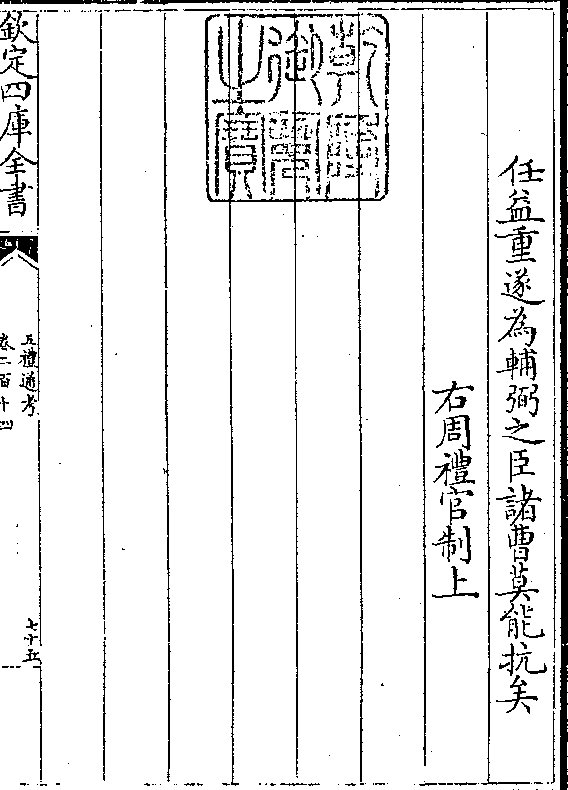 任益重遂為輔弼之臣諸曹莫能抗矣
右周禮官制上
乾隆御覽之寶
欽定四庫全書
五禮通考
卷二百十四
七十五